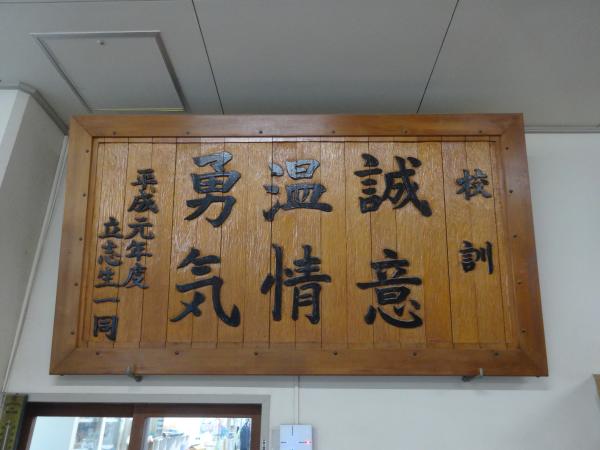 校訓
誠意
温情
勇気
平成元年度
立志生一同